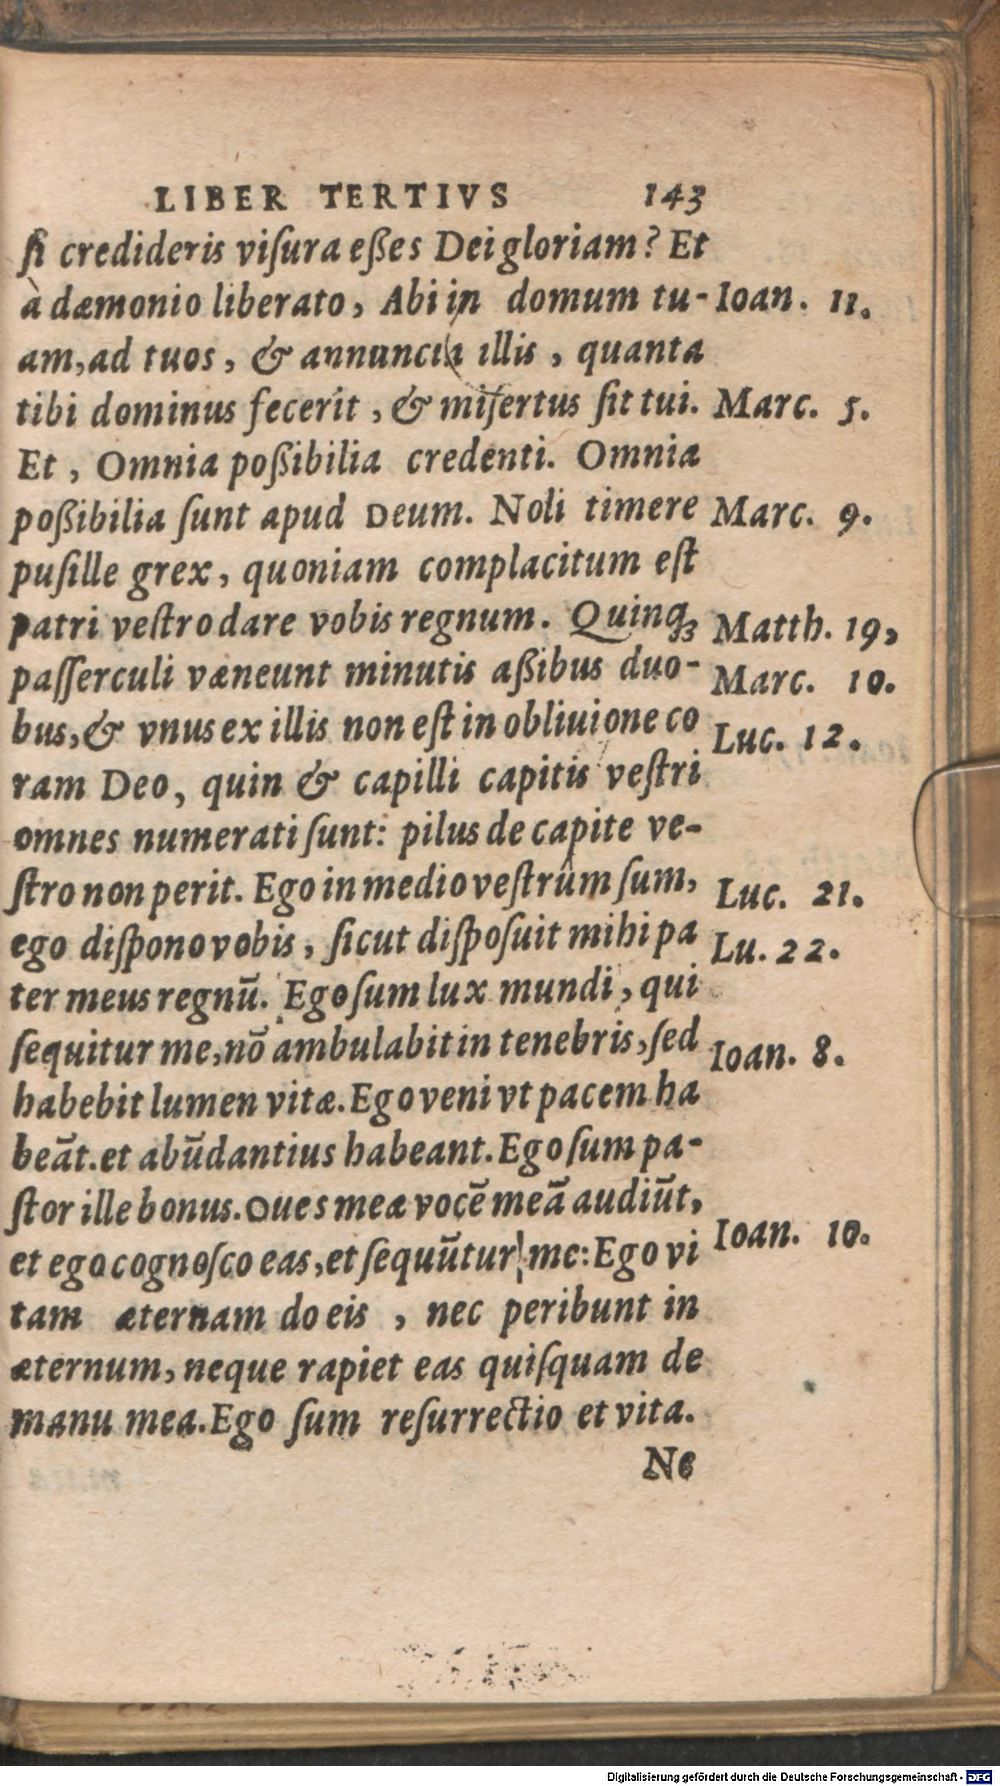 LIBER TERTIVS 143
ſi credideris viſura eßes Dei gloriam? Et
à dæmonio liberato, Abi in domum tu- Ioan. 11.
am, ad tuos, & annuncia illis, quanta
tibi dominus fecerit, & miſertus ſit tui. Marc. 5.
Et, Omnia poßibilia credenti. Omnia
poßibilia ſunt apud Deum. Noli timere Marc. 9.
puſille grex, quoniam complacitum eſt
patri veſtro dare vobis regnum. Quinqꝫ Matth. 19,
paſſerculi væneunt minutis aßibus duo- Marc. 10.
bus, & vnus ex illis non eſt in obliuione co Luc. 12.
ram Deo, quin & capilli capitis veſtri
omnes numerati ſunt: pilus de capite ve-
ſtro non perit. Ego in medio veſtrûm ſum, Luc. 21.
ego diſpono vobis, ſicut diſpoſuit mihi pa Lu. 22.
ter meus regnū. Ego ſum lux mundi, qui
ſequitur me, nō ambulabit in tenebris, ſed Ioan. 8.
habebit lumen vitæ. Ego veni vt pacem ha
beāt. et abūdantius habeant. Ego ſum pa-
ſtor ille bonus. Oues meæ vocē meā audiūt,
et ego cognoſco eas, et ſequūtur me: Ego vi Ioan. 10.
tam æternam do eis, nec peribunt in
æternum, neque rapiet eas quiſquam de
manu mea. Ego ſum reſurrectio et vita.
Ne
Digitalisierung gefördert durch die Deutsche Forschungsgemeinschaft - DFG